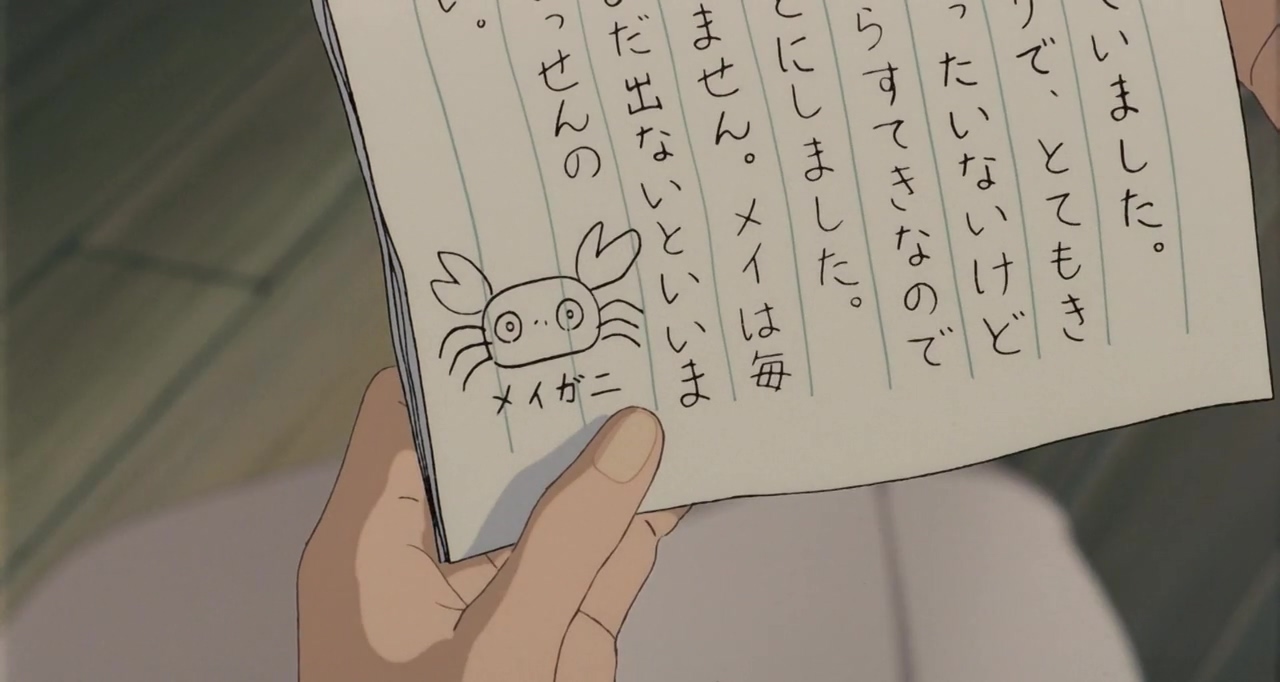 いました。
りで、とてもき
ったいないけど
らすてきなので
とにしました。
ません。メイは毎
だ出ないといいま
っせんの
い。
メイガニ